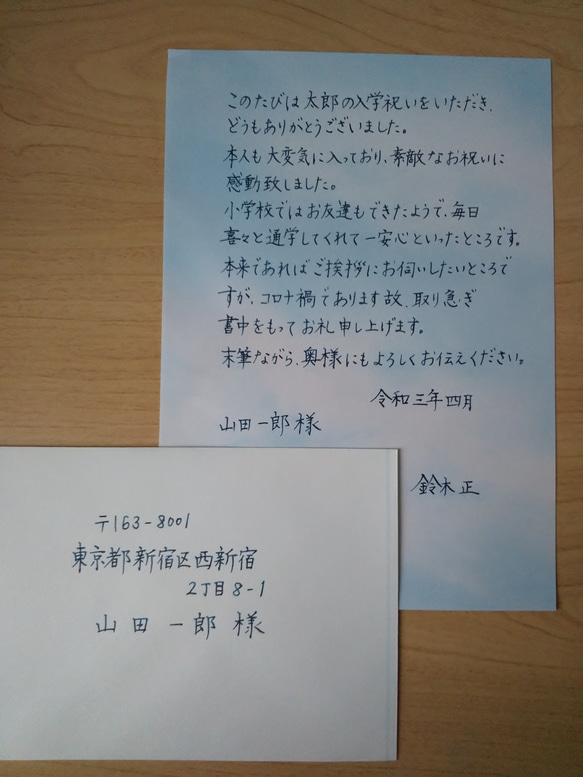 このたびは太郎の入学祝いをいただき、
どうもありがとうございました。
本人も大変気に入っており、素敵なお祝いに
感動致しました。
小学校ではお友達もできたようで、毎日
喜々と通学してくれて一安心といったところです。
本来であればご挨拶にお伺いしたいところで
すが、コロナ禍であります故、取り急ぎ
書中をもってお礼申し上げます。
末筆ながら、奥様にもよろしくお伝えください。
令和三年四月
山田一郎様
鈴木正
〒163-8001
東京都新宿区西新宿
2丁目8-1
山田一郎様